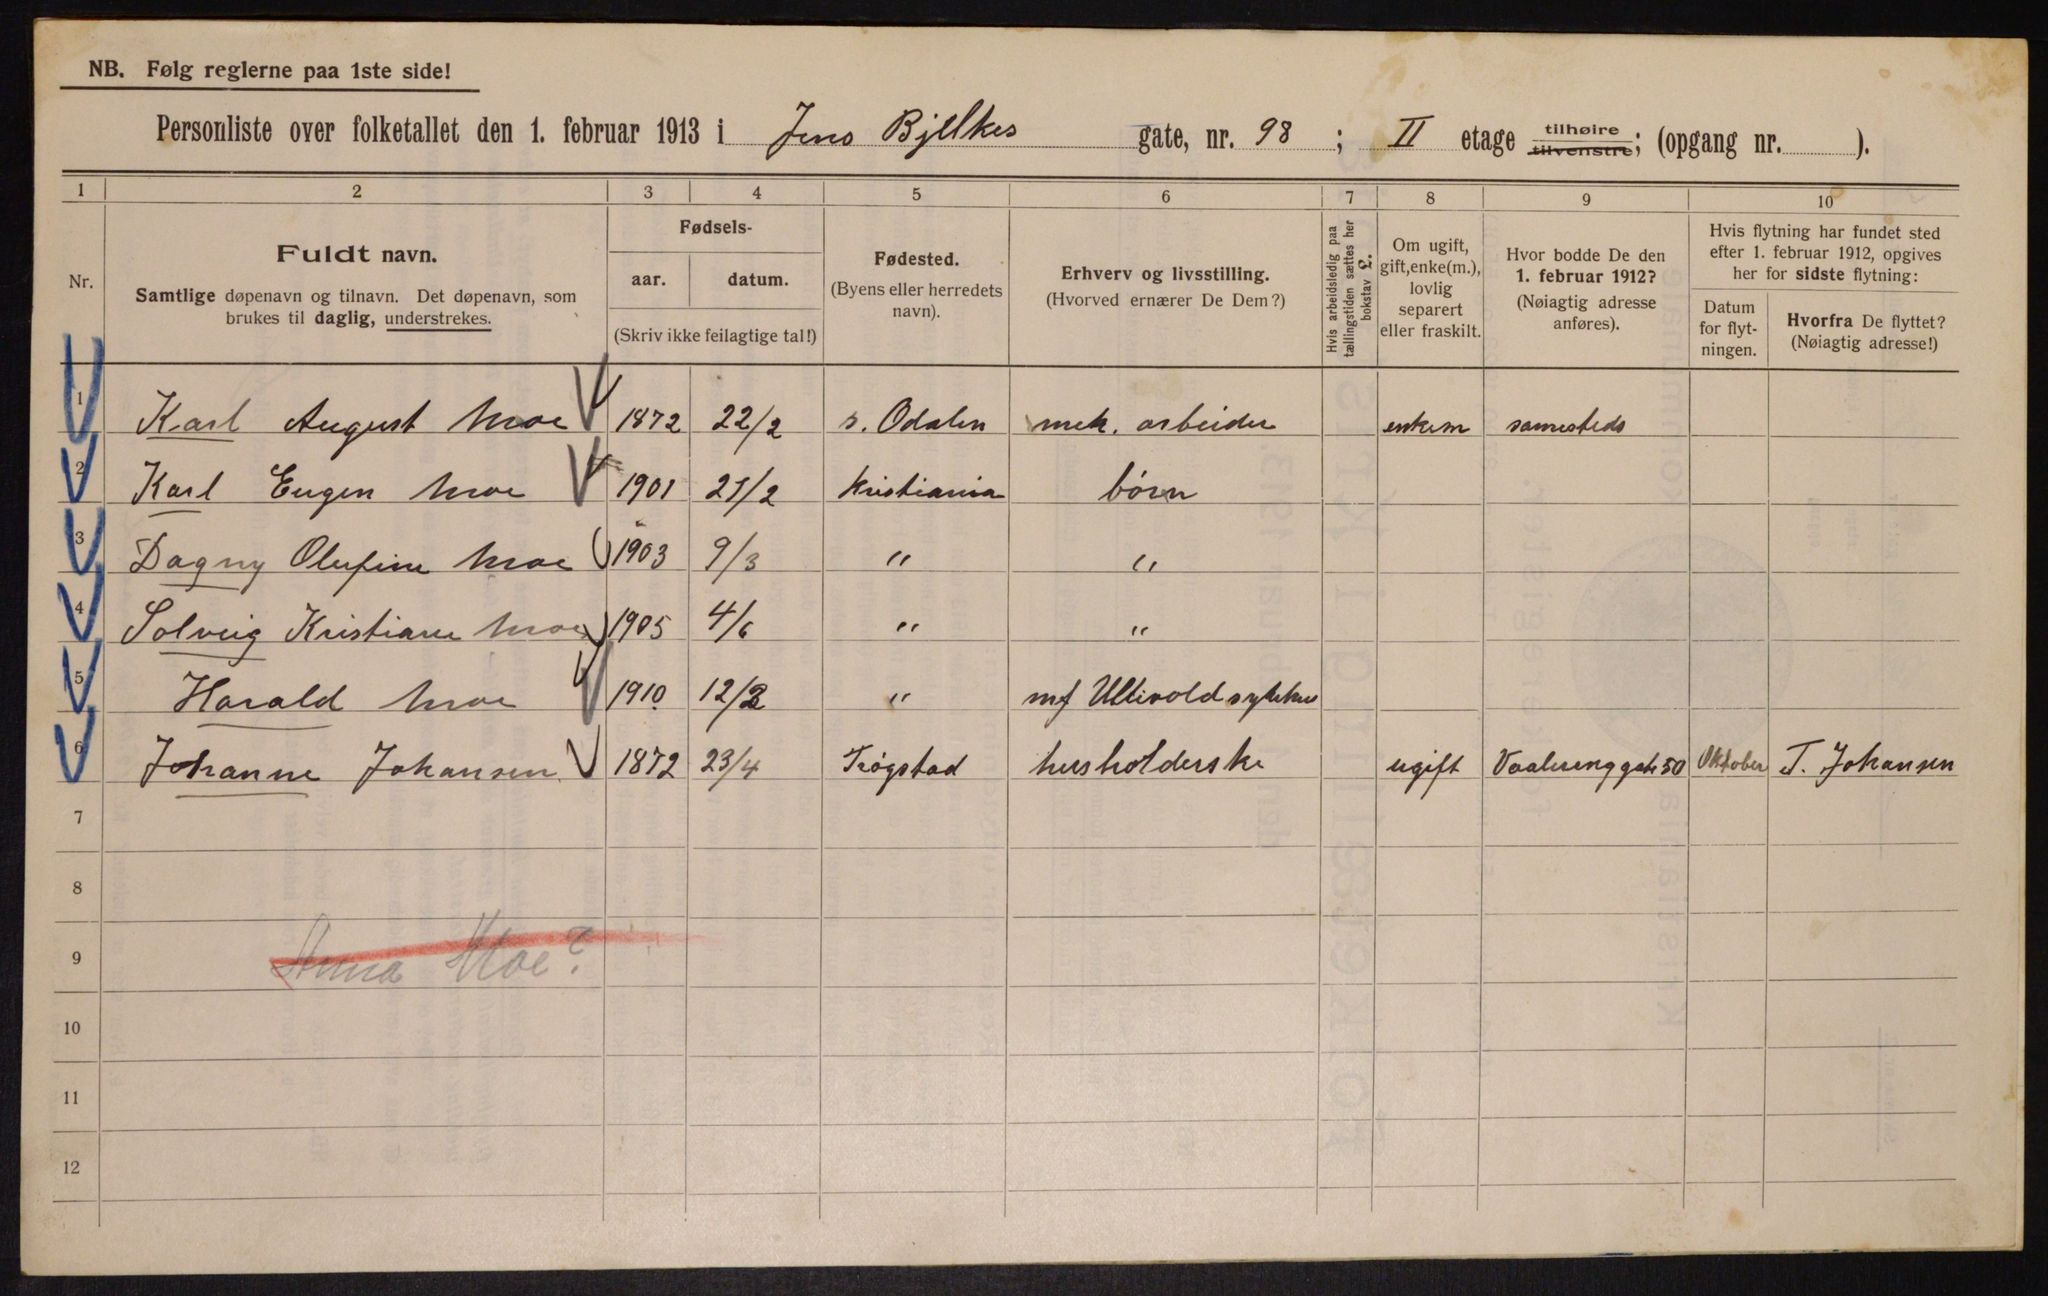 NB. Følg reglerne paa 1ste side!
Personliste over folketallet den 1. februar 1913 i Jens Bjelkes gate, nr. 98 ; II etage tilhøire tilvenstre; (opgang nr. ).
1 2 3 4 5 6 7 8 9 10
Nr.
Fuldt navn.
Samtlige døpenavn og tilnavn. Det døpenavn, som
brukes til daglig, understrekes.
Fødsels-
aar. datum.
(Skriv ikke feilagtige tal!)
Fødested.
(Byens eller herredets
navn).
Erhverv og livsstilling.
(Hvorved ernærer De Dem?)
Hvis arbeidsledig paa
tællingstiden sættes her
bokstav L.
Om ugift,
gift, enke(m.),
lovlig
separert
eller fraskilt.
Hvor bodde De den
1. februar 1912?
(Nøiagtig adresse
anføres).
Hvis flytning har fundet sted
efter 1. februar 1912, opgives
her for sidste flytning:
Datum
for flyt-
ningen.
Hvorfra De flyttet?
(Nøiagtig adresse!)
1 Karl August Moe 1872 22/2 s. Odalen mek. arbeider enkem samesteds
2 Karl Eugen Moe 1901 21/2 Kristiania børn
3 Dagny Olufine Moe 1903 9/3 " "
4 Solveig Kristiane Moe 1905 4/6 " "
5 Harald Moe 1910 12/2 " Ullevold sykehus
6 Johanne Johansen 1872 23/4 Trøgstad husholderske ugift Vaalerenggate 50 Oktober T. Johansen
7
8
9 Anna Moe?
10
11
12